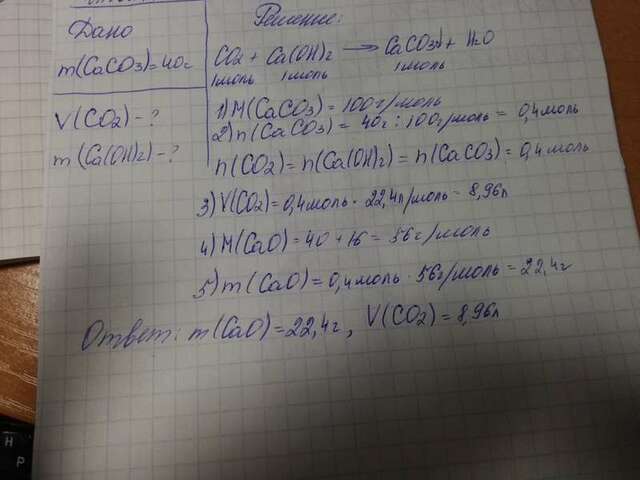 Дано
m(CaCO3)=40г
V(CO2)-?
m(Ca(OH)2)-?
Решение:
CO2 + Ca(OH)2 → CaCO3↓ + H2O
1моль 1моль 1моль
1) M(CaCO3) = 100г/моль
2) n(CaCO3) = 40г : 100г/моль = 0,4моль
n(CO2) = n(Ca(OH)2) = n(CaCO3) = 0,4моль
3) V(CO2) = 0,4моль · 22,4л/моль = 8,96л
4) M(CaO) = 40 + 16 = 56г/моль
5) m(CaO) = 0,4моль · 56г/моль = 22,4г
Ответ: m(CaO) = 22,4г, V(CO2) = 8,96л
Н
P